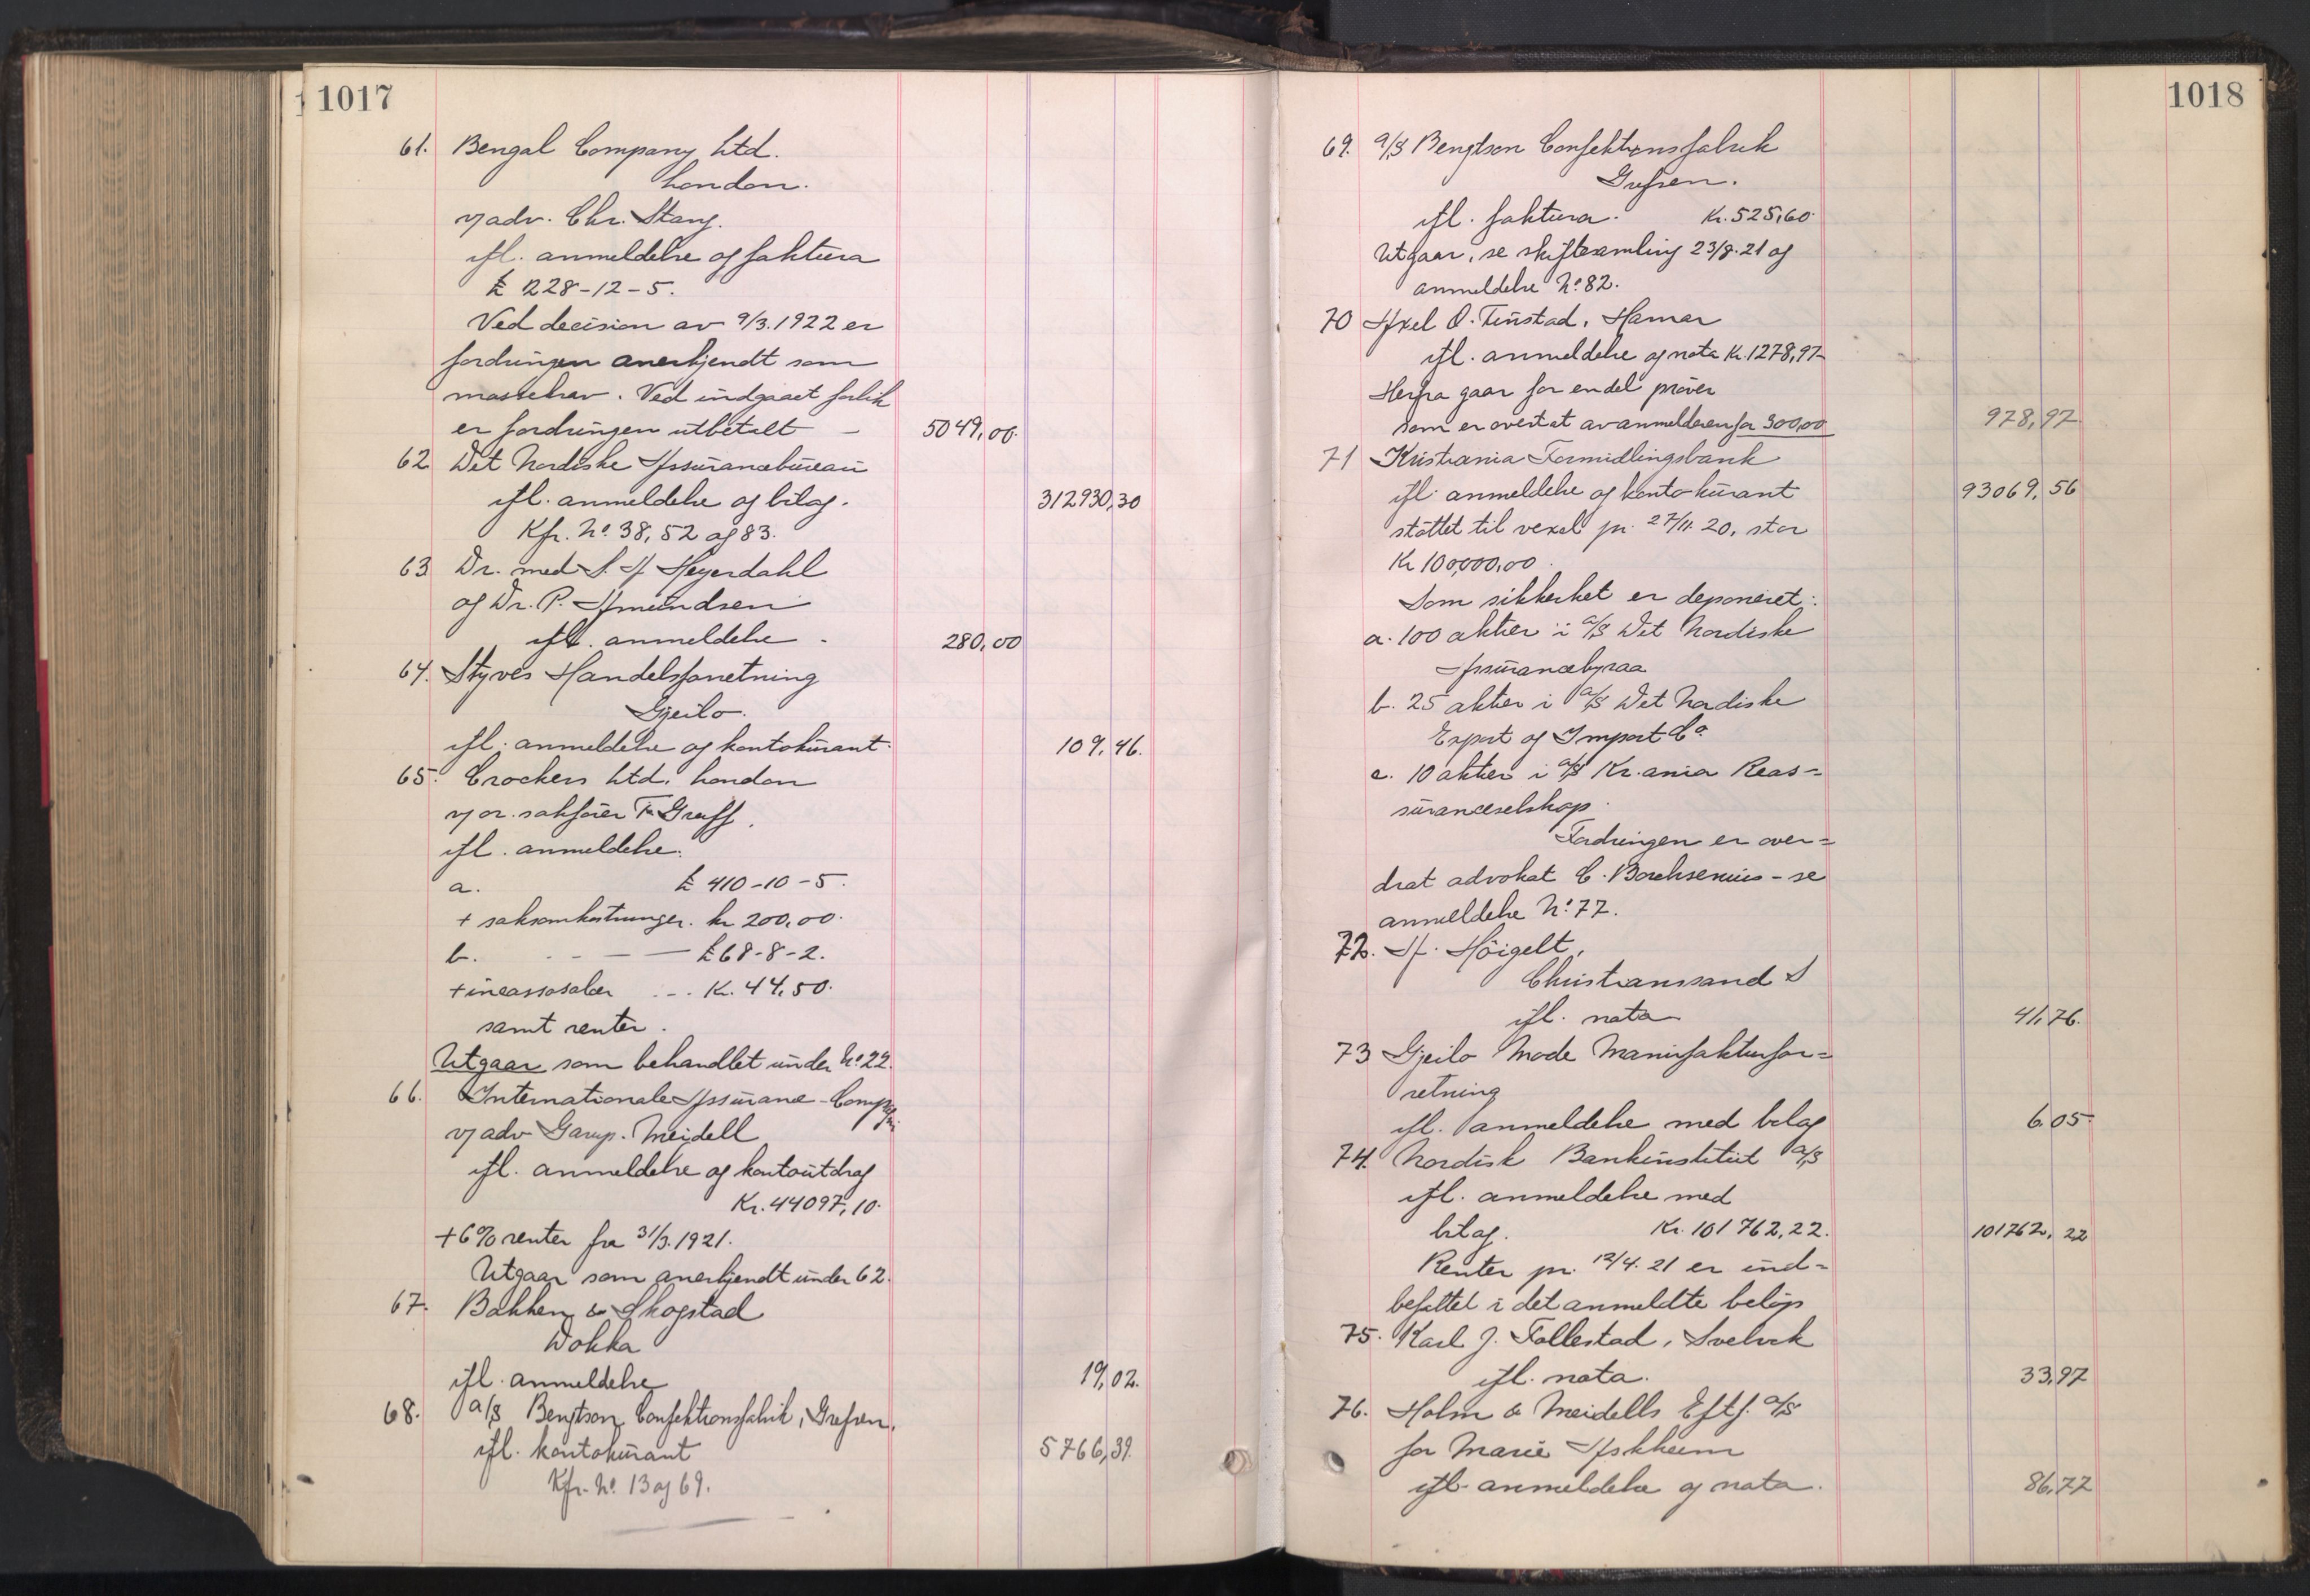 1017
61. Bengal Company Ltd.
London.
v/ adv. Chr. Stang.
ifl. anmeldelse og faktura
£ 228-12-5.
Ved decision av 9/3.1922 er
fordringen anerkjendt som
massekrav. Ved indgaaet forlik
er fordringen utbetalt – 5049,00.
62 Det Nordiske Assurancebureau
ifl. anmeldelse og bilag. 312930,30
Kfr. No. 38, 52 og 83.
63 Dr. med S. A Heyerdahl
og Dr. P. Amundsen
ifl. anmeldelse - 280,00
64. Styves Handelsforretning
Gjeilo.
ifl. anmeldelse og kontokurant. 109,46.
65. Crockers Ltd. London
v/ or. sakfører Fr. Greiff.
ifl. anmeldelse:
a. £ 410-10-5.
+ saksomkostninger. kr 200,00.
b. - - — — £68-8-2.
+ incassosalær ... Kr. 44,50.
samt renter.
Utgaar som behandlet under No. 22.
66. Internationale Assurance-Compagni
v/ adv Harup. Meidell
ifl. anmeldelse og kontoutdrag
Kr. 44097,10.
+ 6% renter fra 31/3.1921.
Utgaar som anerkjendt under 62.
67. Bakken & Skogstad
Dokka
ifl. anmeldelse 19,02.
68. a/s Bengtson Confektionsfabrik, Grefsen.
ifl. kontokurant 5766,39.
Kfr. No. 13 og 69.
1018
69. a/s Bengtson Confektionsfabrik
Grefsen.
ifl. faktura. Kr. 525,60.
Utgaar, se skiftesamling 23/8.21 og
anmeldelse No. 82.
70 Axel O. Finstad, Hamar
ifl. anmeldelse og nota Kr. 1278,97
Herfra gaar for endel prøver
som er overtat av anmelderen for 300,00 978,97
71 Kristiania Formidlingsbank
ifl. anmeldelse og konto-kurant 93069,56
støttet til vexel pr. 27/11.20, stor
Kr 100,000,00.
Som sikkerhet er deponeret:
a. 100 aktier i a/s Det Nordiske
Assurancebyraa
b. 25 aktier i a/s Det Nordiske
Export og Import Co.
c. 10 aktier i a/s Kr.ania Reas=
suranceselskap.
Fordringen er over=
drat advokat C. Borchsenius - se
anmeldelse No. 77.
72. A. Höigelt,
Christianssand S
ifl. nota 41,76.
73 Gjeilo Mode Manufakturfor=
retning
ifl. anmeldelse med bilag 6.05
74. Nordisk Bankinstitut a/s
ifl. anmeldelse med
bilag. Kr. 101762,22. 101762,22
Renter pr. 12/4.21 er ind=
befattet i det anmeldte beløp
75. Karl J. Follestad, Svelvik
ifl. nota. 33,97
76. Holm & Meidells Eftf. a/s
for Marie Askheim
ifl. anmeldelse og nota. 86,77